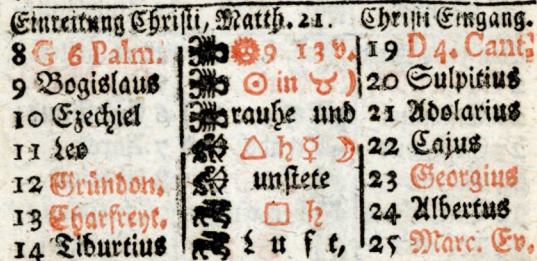 Einreitung Christi, Matth. 21. Christi Eingang.
8 G 6 Palm. 9 13 v. 19 D 4. Cant.
9 Bogislaus ☉ in ♉ ) 20 Sulpitius
10 Ezechiel rauhe und 21 Adolarius
11 Leo △ ♄ ☿ ☽ 22 Cajus
12 Gründon. unstete 23 Georgius
13 Charfreyt. □ ♄ 24 Albertus
14 Tiburtius Luft, 25 Marc. Ev.